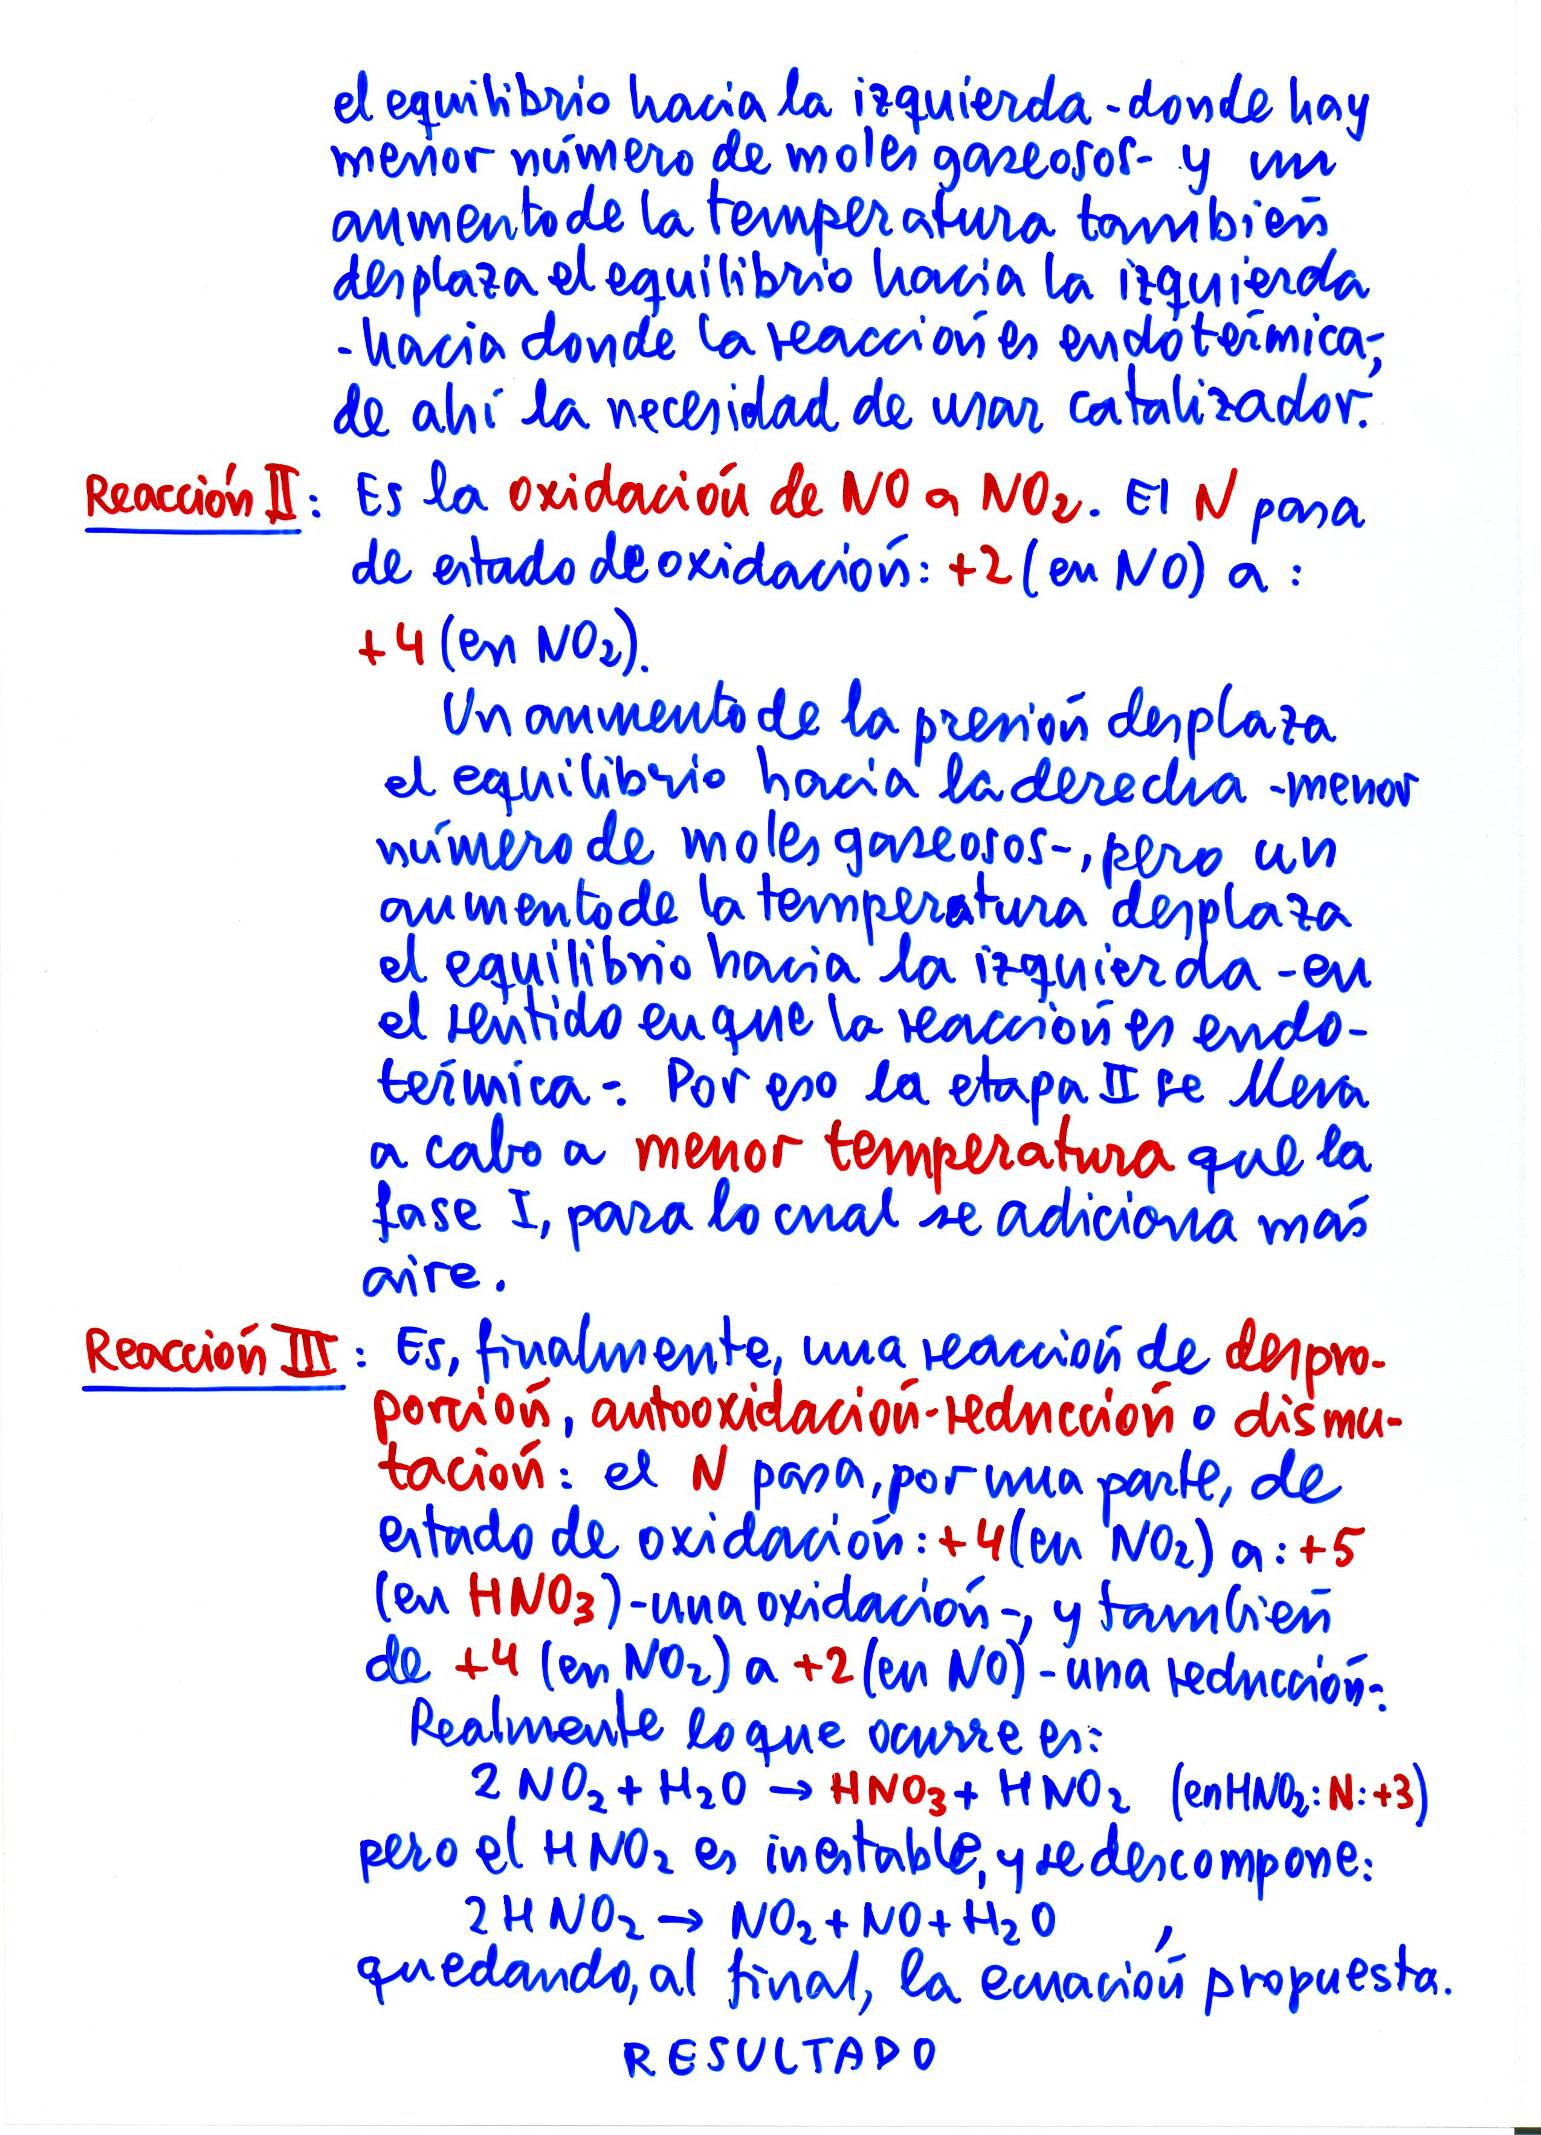 el equilibrio hacia la izquierda -donde hay
menor número de moles gaseosos- y un
aumento de la temperatura también
desplaza el equilibrio hacia la izquierda
-hacia donde la reacción es endotérmica-,
de ahí la necesidad de usar catalizador.
Reacción II: Es la oxidación de NO a NO₂. El N pasa
de estado de oxidación: +2 (en NO) a :
+4 (en NO₂).
Un aumento de la presión desplaza
el equilibrio hacia la derecha -menor
número de moles gaseosos-, pero un
aumento de la temperatura desplaza
el equilibrio hacia la izquierda -en
el sentido en que la reacción es endo-
térmica-. Por eso la etapa II se lleva
a cabo a menor temperatura que la
fase I, para lo cual se adiciona más
aire.
Reacción III: Es, finalmente, una reacción de despro-
porción, autooxidación-reducción o dismu-
tación: el N pasa, por una parte, de
estado de oxidación: +4 (en NO₂) a: +5
(en HNO₃) -una oxidación-, y también
de +4 (en NO₂) a +2 (en NO) -una reducción-.
Realmente lo que ocurre es:
2 NO₂ + H₂O → HNO₃ + HNO₂ (en HNO₂: N: +3)
pero el HNO₂ es inestable, y se descompone:
2 HNO₂ → NO₂ + NO + H₂O ,
quedando, al final, la ecuación propuesta.
RESULTADO